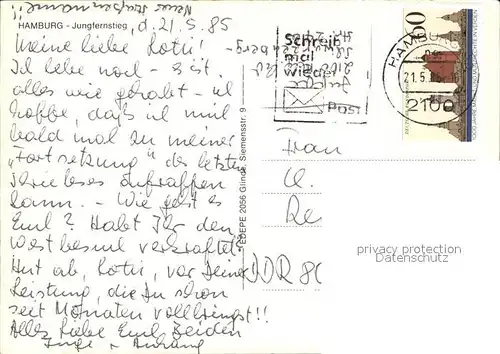 Neuer Straßenname!
HAMBURG - Jungfernstieg
, d. 21.5.85
Meine liebe Lotti!
Ich lebe noch - es ist
alles wie gehabt - ich
hoffe, daß ich mich
bald mal zu meiner
"Fortsetzung" des letzten
Schreibens aufraffen
kann. - Wie geht es
Euch? Habt Ihr den
Westbesuch verkraftet?
Hut ab, Lotti, vor Deiner
Leistung, die Du schon
seit Monaten vollbringst!!
Alles Liebe Euch Beiden
Inge + Anhang
EDEPE 2056 Glinde, Siemensstr. 9
Schreib
mal
wieder
POST
60
HAMBURG
21.5.
2100
Frau
DDR 80
protection VDPPR
Copyright